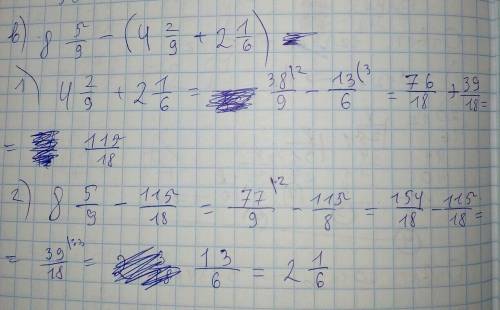 в) 8 5/9 - (4 2/9 + 2 1/6)
1) 4 2/9 + 2 1/6 = 38/9 |2 - 13/6 (3 = 76/18 + 39/18 =
= 115/18
2) 8 5/9 - 115/18 = 77/9 |2 - 115/8 = 154/18 - 115/18 =
= 39/18 |:3 = 13/6 = 2 1/6